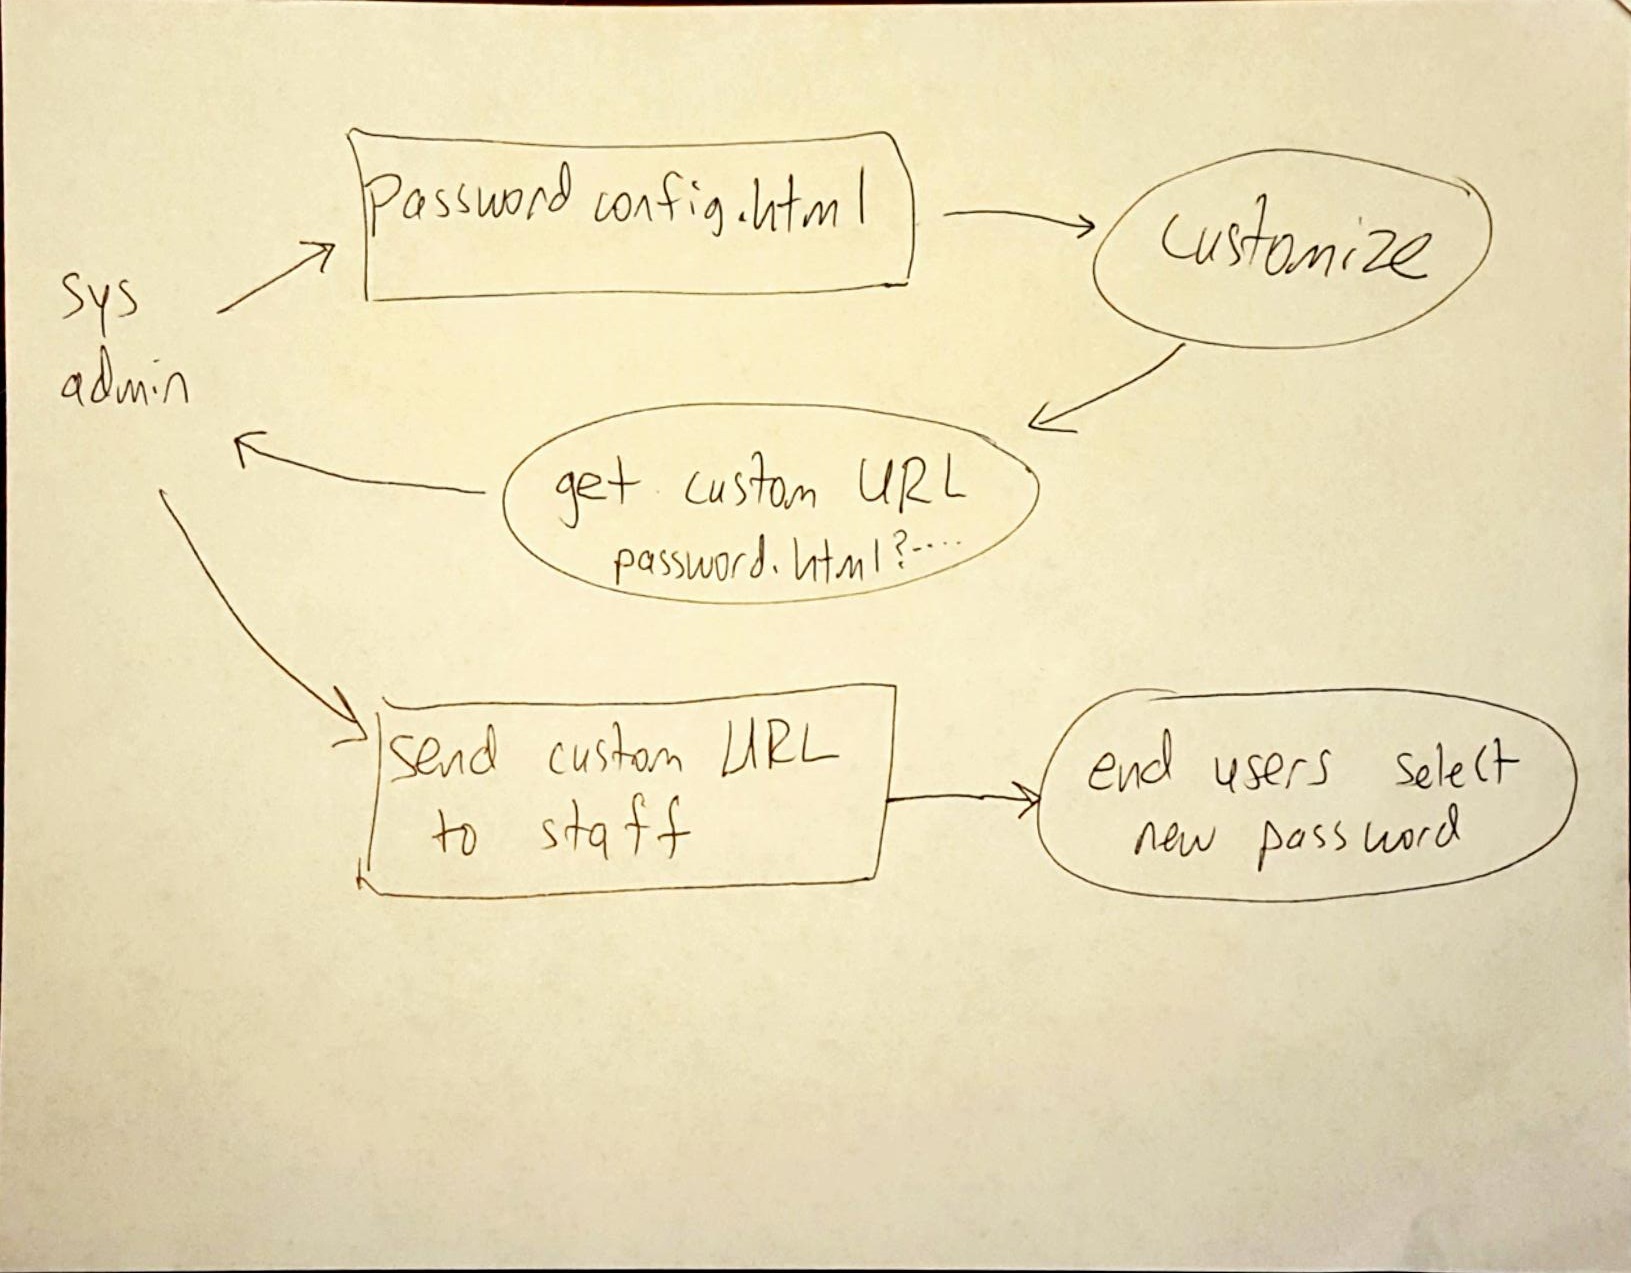 Password config.html
customize
sys
admin
get custom URL
password.html?.....
send custom URL
to staff
end users select
new password